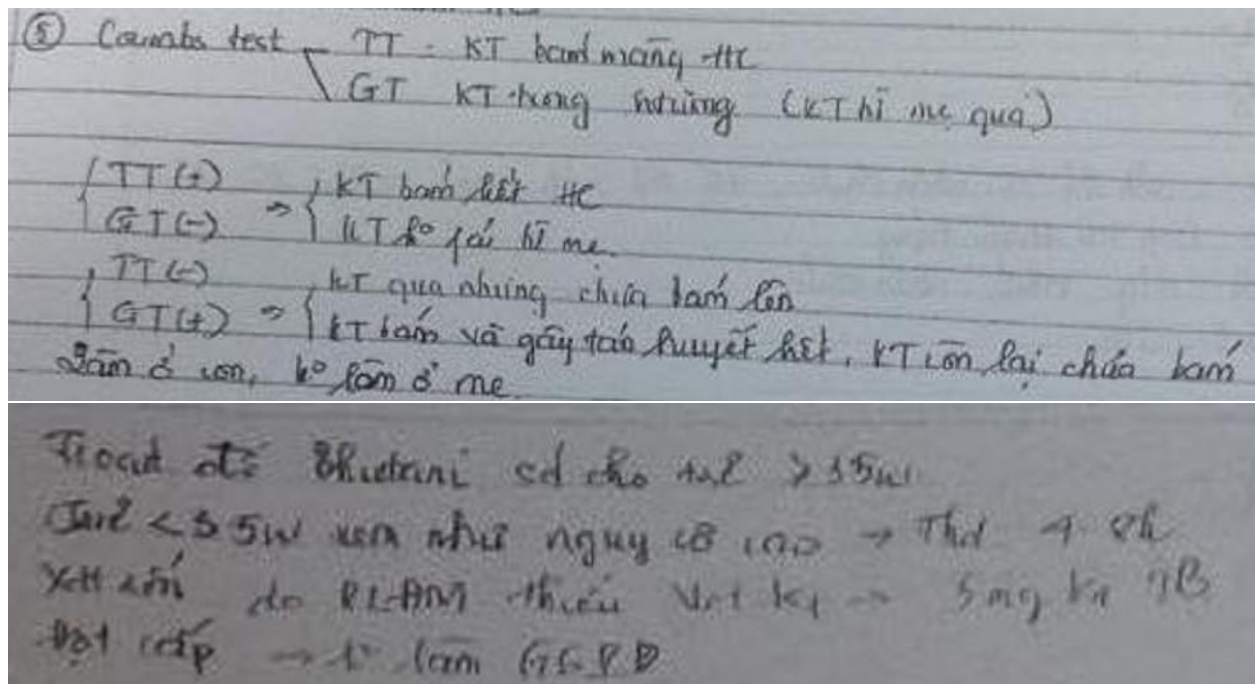 ⑤ Coombs test - TT - KT bám màng HC
GT KT trong htương (KT hī mẹ qua)
TT (+) => KT bám hết HC
GT (-) KT ko phải hī mẹ.
TT (-) KT qua nhưng chưa bám lên
GT (+) => KT bám và gây tán huyết hết, KT còn lại chưa bám
Làm ở con, ko làm ở mẹ
Toán đồ Bhutani sd cho > 35w
< 35w xem như nguy cơ cao →
XH do RLĐM thiếu Vit K1 → 5mg K1 TB
Đợt cấp → ko làm G6PD